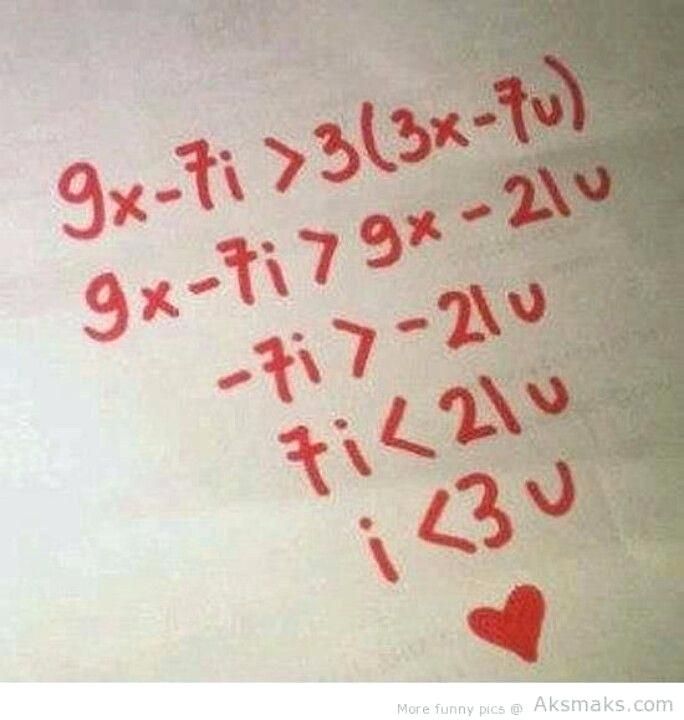 9x-7i > 3(3x-7u)
9x-7i > 9x - 21u
-7i > -21u
7i < 21u
i <3 u
More funny pics @ Aksmaks.com